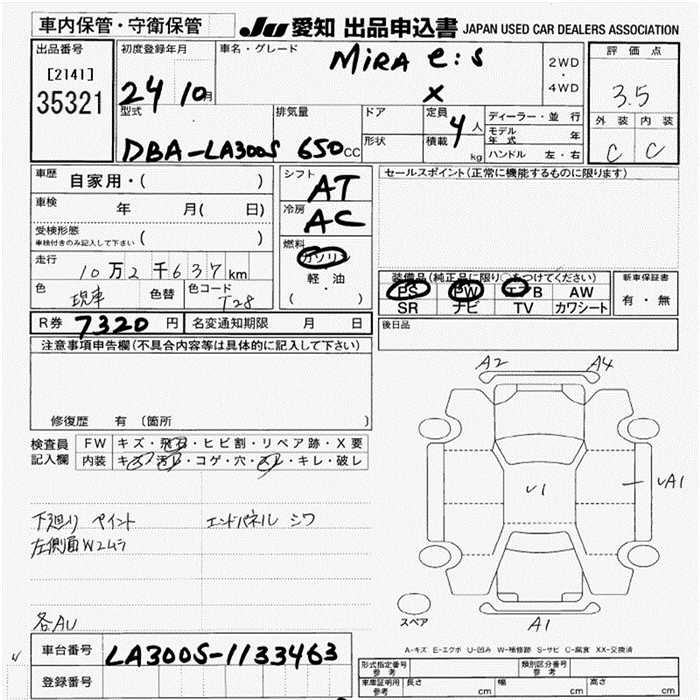 車内保管・守衛保管
JU 愛知 出品申込書 JAPAN USED CAR DEALERS ASSOCIATION
出品番号
[2141]
35321
初度登録年月
24 10月
車名・グレード
MiRA e:s
X
2WD
・
4WD
評価点
3.5
外装 内装
C C
型式
DBA-LA300S
排気量
650cc
ドア
形状
定員
4人
積載
kg
ディーラー・並行
モデル年式 年
ハンドル 左・右
車歴 自家用・( )
車検 年 月( 日)
受検形態
車検付きのみ記入して下さい ( )
走行
10万2千637km
色
現車
色替
色コード
T28
シフト
AT
冷房
AC
燃料
ガソリン
軽・油
( ・ )
セールスポイント(正常に機能するものに限ります)
装備品(純正品に限り○をつけてください)
PS PW エアB AW
SR ナビ TV カワシート
新車保証書
有・無
後日品
R券 7320円
名変通知期限 月 日
注意事項申告欄(不具合内容等は具体的に記入して下さい)
修復歴 有 〔箇所 〕
検査員記入欄
FW キズ・飛石・ヒビ割・リペア跡・X要
内装 キズ・汚レ・コゲ・穴・スレ・キレ・破レ
下廻り ペイント
エンドパネル シワ
左側面W2ムラ
各AU
A2 A4
U1
UA1
A1
スペア
車台番号 LA300S-1133463
登録番号
A-キズ E-エクボ U-凹み W-補修跡 S-サビ C-腐食 XX-交換済
形式指定番号
参考
類別区分番号
参考
車庫証明用
参考
長さ cm
幅 cm
高さ cm